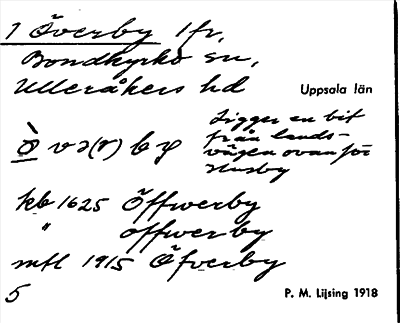 1 Överby 1 fr,
Bondkyrko sn,
Ulleråkers hd Uppsala län
ò və(r) bу
Ligger en bit
från lands-
vägen ovanför
Husby
kb 1625 Öffwerby
" offwerby
mtl 1915 Öfverby
5 P. M. Lijsing 1918